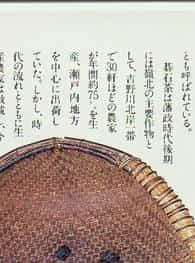 とも呼ばれている。
碁石茶は藩政時代後期
には嶺北の主要作物と
して、吉野川北岸一帯
で30軒ほどの農家
が年間約75㌧を生
産、瀬戸内地方
を中心に出荷し
ていた。しかし、時
代の流れとともに生